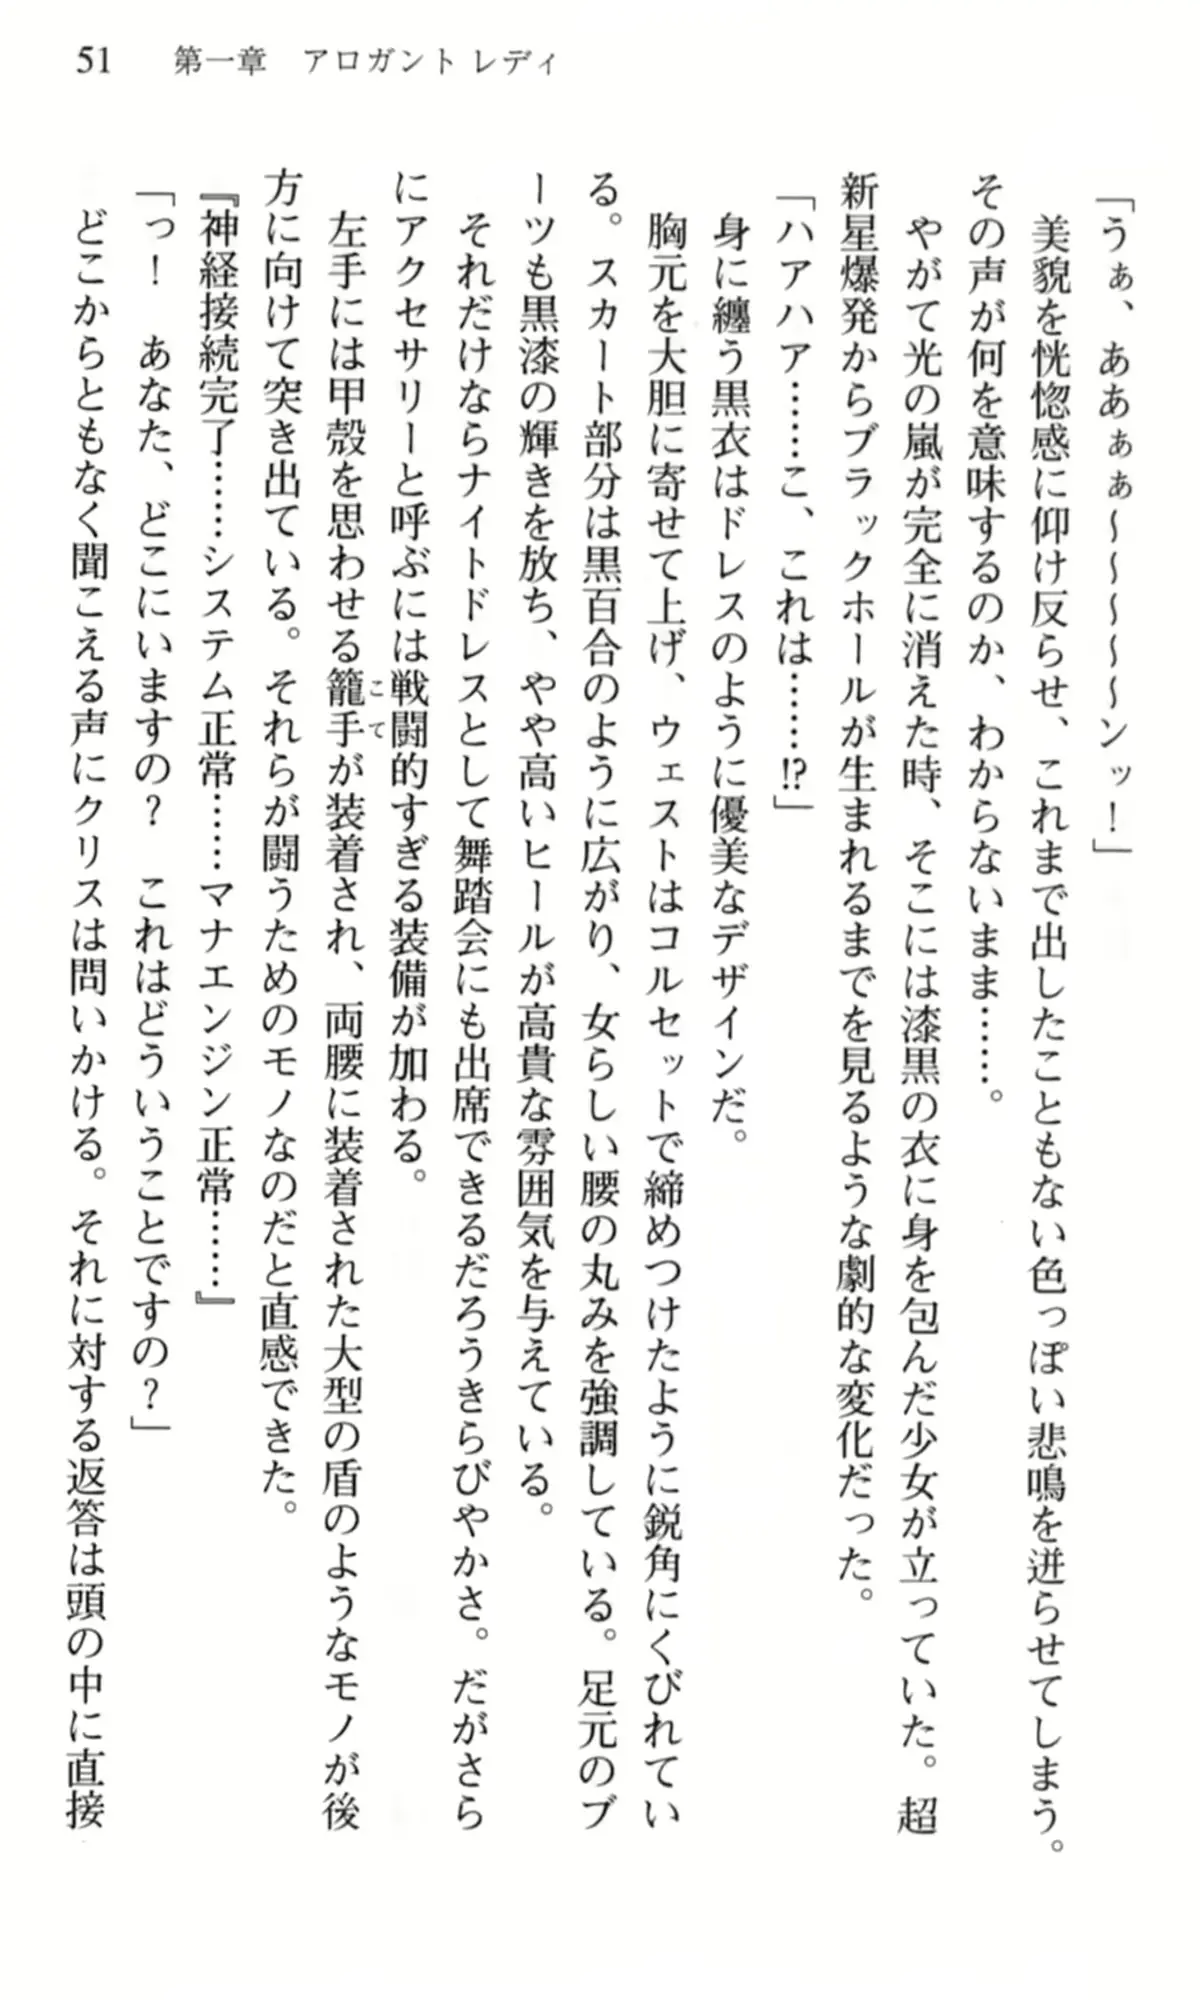 51　第一章　アロガント レディ
「うぁ、ああぁぁ～～～～～ンッ！」
　美貌を恍惚感に仰け反らせ、これまで出したこともない色っぽい悲鳴を迸らせてしまう。
その声が何を意味するのか、わからないまま……。
　やがて光の嵐が完全に消えた時、そこには漆黒の衣に身を包んだ少女が立っていた。超
新星爆発からブラックホールが生まれるまでを見るような劇的な変化だった。
「ハアハア……こ、これは……⁉」
　身に纏う黒衣はドレスのように優美なデザインだ。
　胸元を大胆に寄せて上げ、ウェストはコルセットで締めつけたように鋭角にくびれてい
る。スカート部分は黒百合のように広がり、女らしい腰の丸みを強調している。足元のブ
ーツも黒漆の輝きを放ち、やや高いヒールが高貴な雰囲気を与えている。
　それだけならナイトドレスとして舞踏会にも出席できるだろうきらびやかさ。だがさら
にアクセサリーと呼ぶには戦闘的すぎる装備が加わる。
　左手には甲殻を思わせる籠手こてが装着され、両腰に装着された大型の盾のようなモノが後
方に向けて突き出ている。それらが闘うためのモノなのだと直感できた。
『神経接続完了……システム正常……マナエンジン正常……』
「っ！　あなた、どこにいますの？　これはどういうことですの？」
　どこからともなく聞こえる声にクリスは問いかける。それに対する返答は頭の中に直接